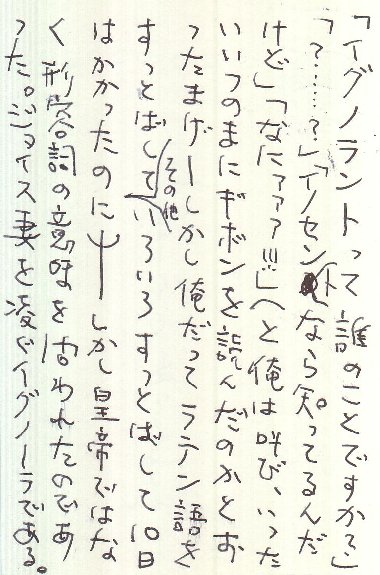 「イグノラントって誰のことですか?」
「?……?」「イノセントなら知ってるんだ
けど」「なにァァァ!!!」へと俺は叫び、いった
いいつのまにギボンを読んだのかとお
ったまげーしかし俺だってラテン語を
すっとばして(その他)いろいろすっとばして10日
はかかったのに
ーしかし皇帝ではな
く形容詞の意味を問われたのであ
った。ジョイス妻を凌ぐイグノーラである。